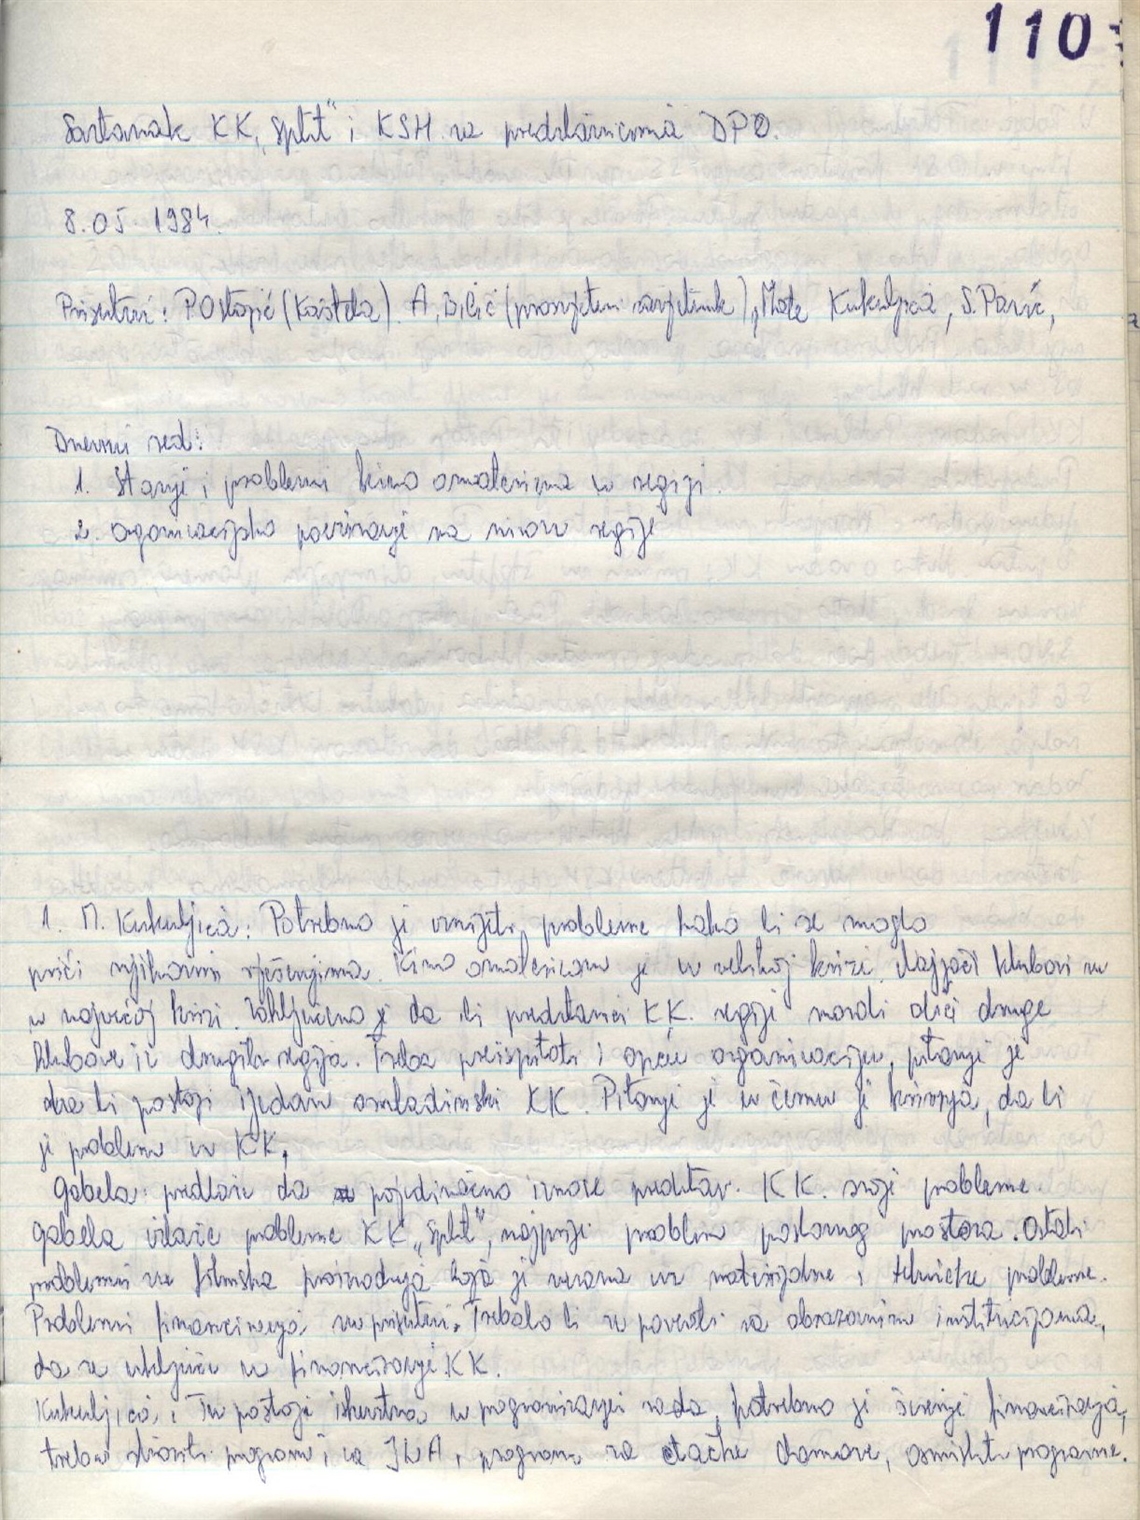 110
Sastanak KK „Split" i KSH sa predstavnicima DPO.
8.05 1984.
Prisutni: P. Ostojić (Kaštela). A. Bilić (prosvjetni savjetnik), Mate Kukuljica, S. Pavić,
Dnevni red:
1. Stanje i problemi kino amaterizma u regiji.
2. organizacijsko povezivanje na nivou regije
1. M. Kukuljica: Potrebno je iznijeti probleme kako bi se moglo
prići njihovim rješenjima. Kino amaterizam je u velikoj krizi. Najjači klubovi su
u najvećoj krizi. Zaključeno je da bi predstavnici KK. regije morali obići druge
klubove iz drugih regija. Treba preispitati i opću organizaciju, pitanje je
da li postoji ijedan omladinski KK. Pitanje je u čemu je kriza, da li
je problem u KK,
Gabela: predlaže da pojedinačno iznose predstav. KK. svoje probleme.
Gabela izlaže probleme KK „Split", najprije problem poslovnog prostora. Ostali
problemi su filmska proizvodnja koja je vezana uz materijalne i tehničke probleme.
Problemi financiranja su prisutni. Trebalo bi se povezati sa obrazovnim institucijama,
da se uključe u financiranje KK.
Kukuljica: Tu postoje iskustva u programiranju rada, potrebno je širenje financiranja,
treba stvoriti programe i za JNA, programe za đačke domove, osmisliti programe.